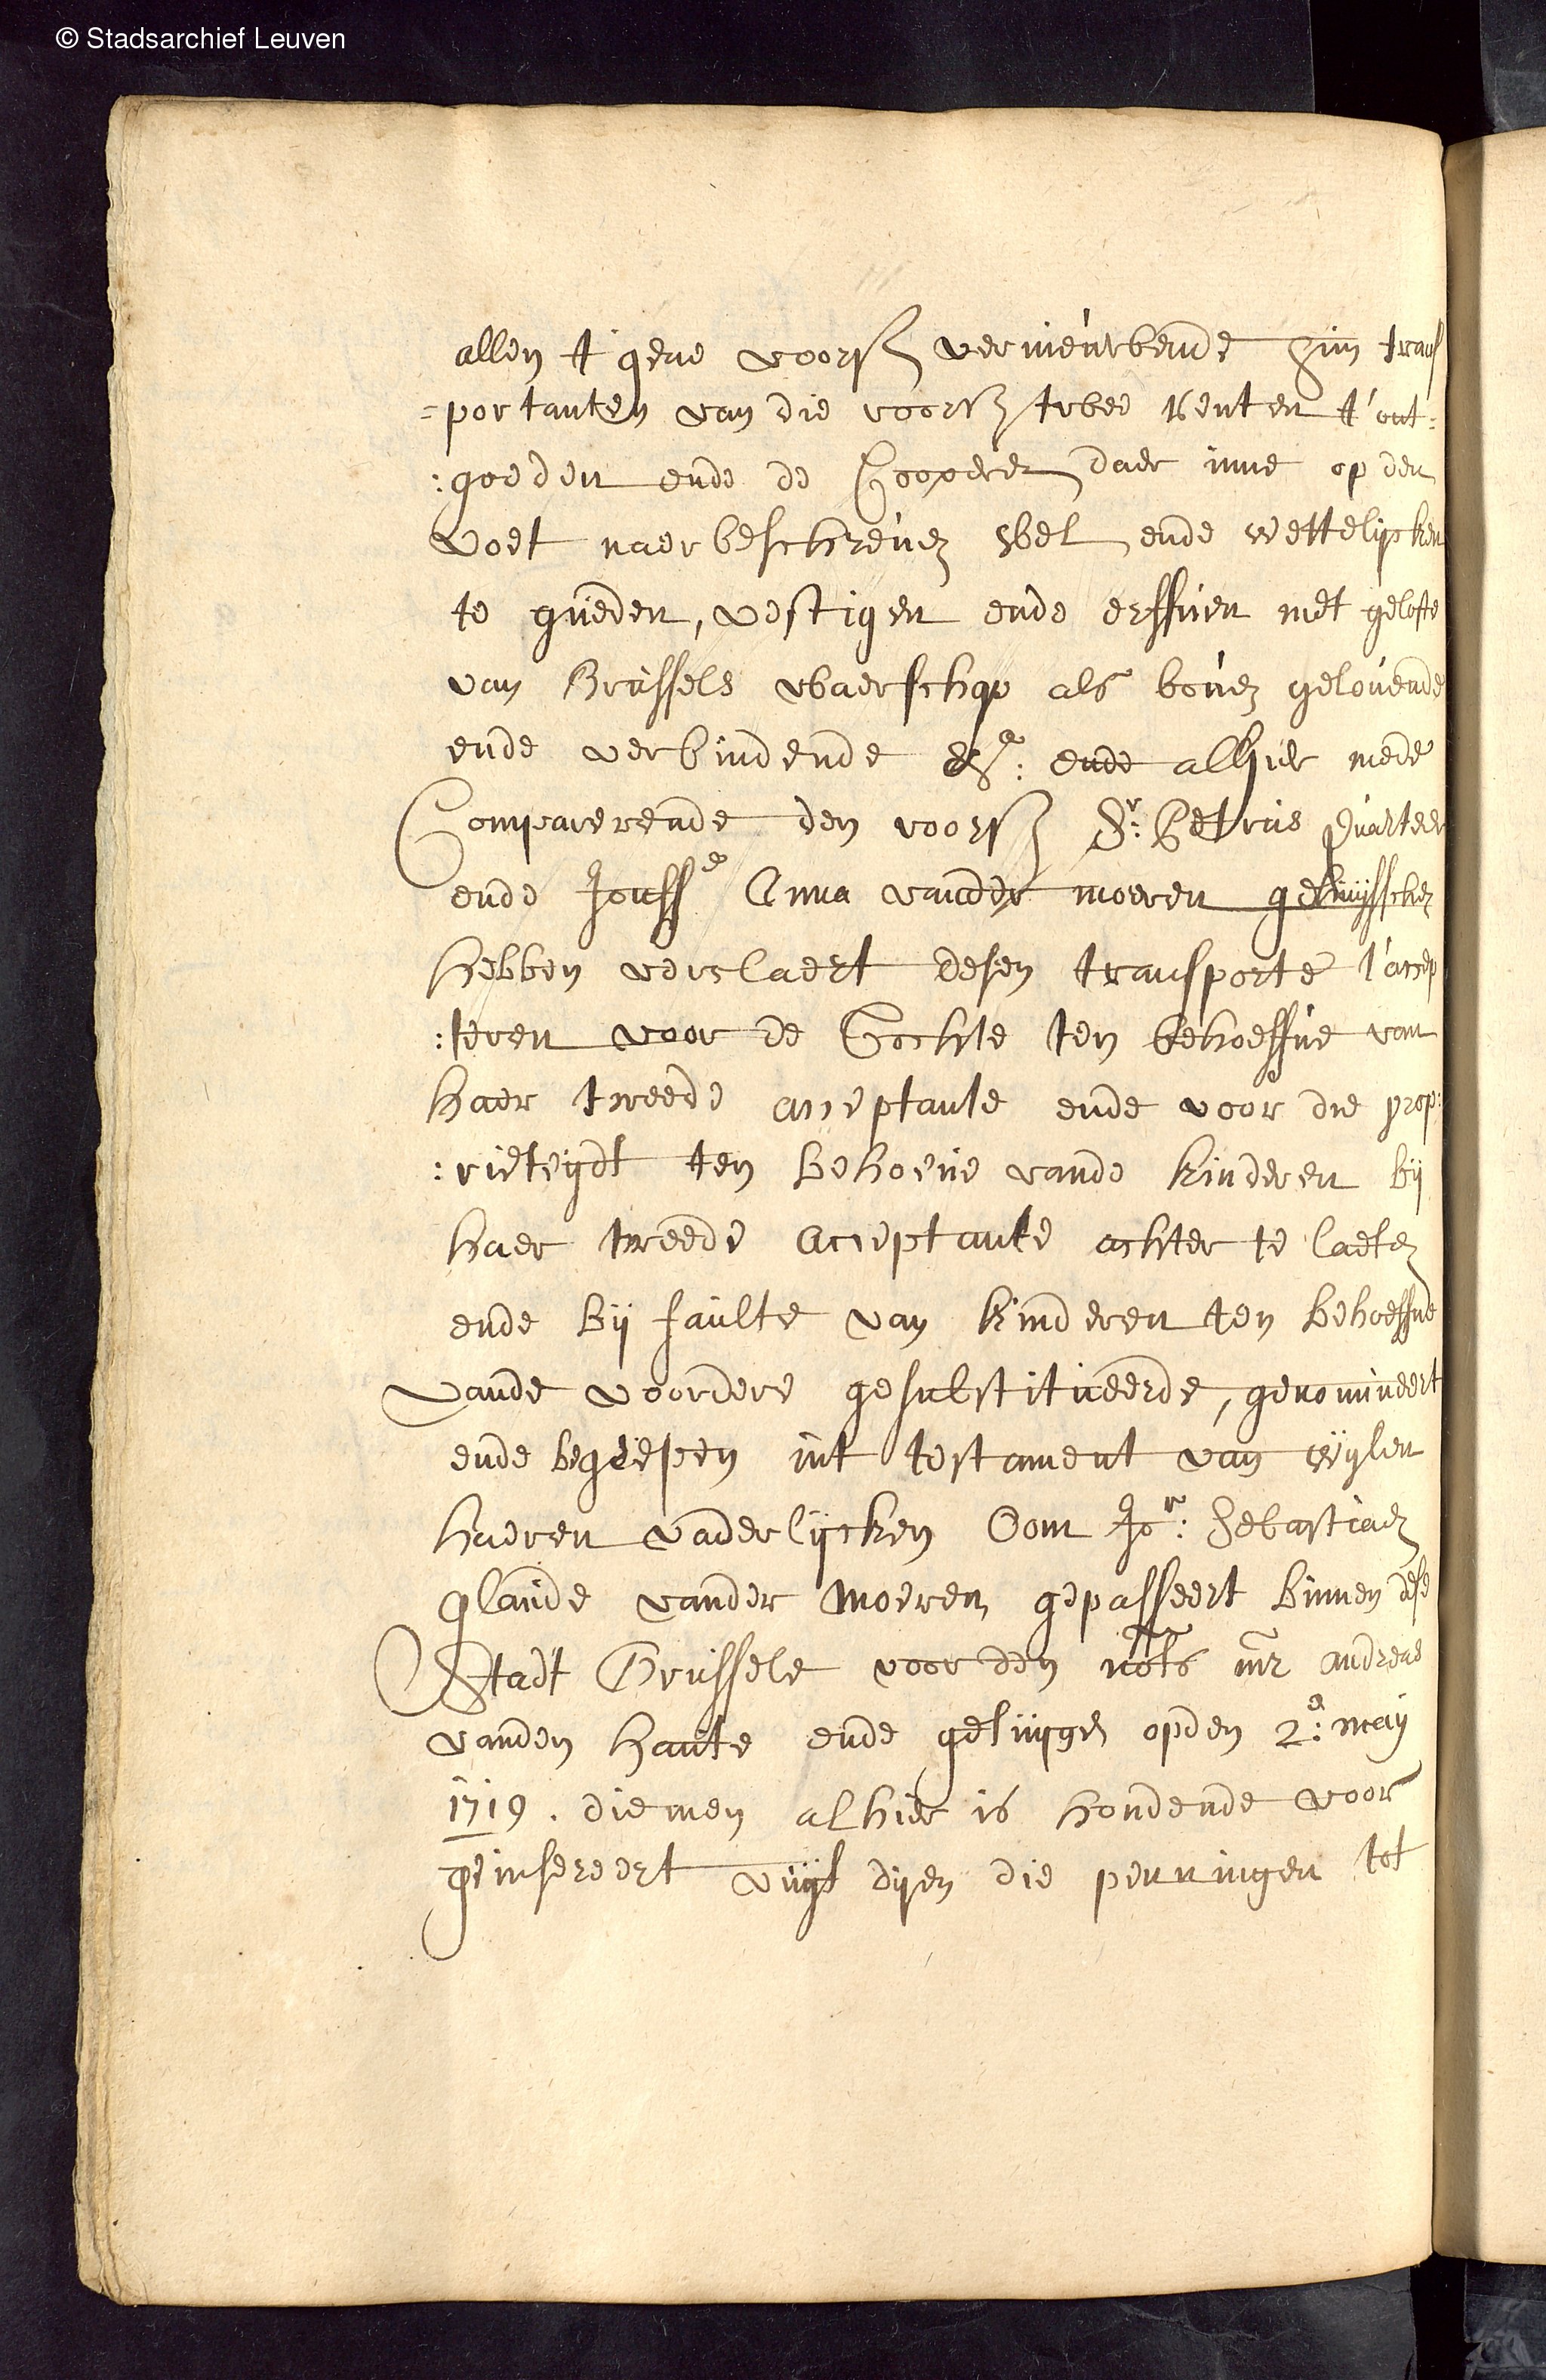 © Stadsarchief Leuven
allen t'gene voorsz vernieuwende zijn trans
=portanten van die voorsz twee renten t'ont=
:goeden ende de Cooperen daer inne op den
voet naerbeschreven wel ende wettelycken
te gueden, vestigen ende erffven met gelofte
van Brussels waerschap als boven gelovende
ende verbindende &a: ende alhier mede
Comparerende den voorsz Sr: Petrus Quarteer
ende Jouffe Anna vander moeren gehuysschen
hebben verclaert desen transporte t'accep
:teren voor de Tochte ten behoeffve van
haer tweede acceptante ende voor die prop:
:rieteydt ten behoeve vande kinderen bij
haer tweede acceptante achter te laeten
ende bij faulte van kinderen ten behoeffve
vande voordere gesubstitueerde, genomineert
ende begrepen int testament van wijlen
haeren vaderlijcken Oom Jor: Sebastiaen
glaude vander Moeren gepasseert binnen dese
Stadt Brussele voor den nots mr andreas
vanden Haute ende getuygen opden 2a: meij
1719. diemen alhier is houdende voor
geinsereert vuyt dyen die penningen tot